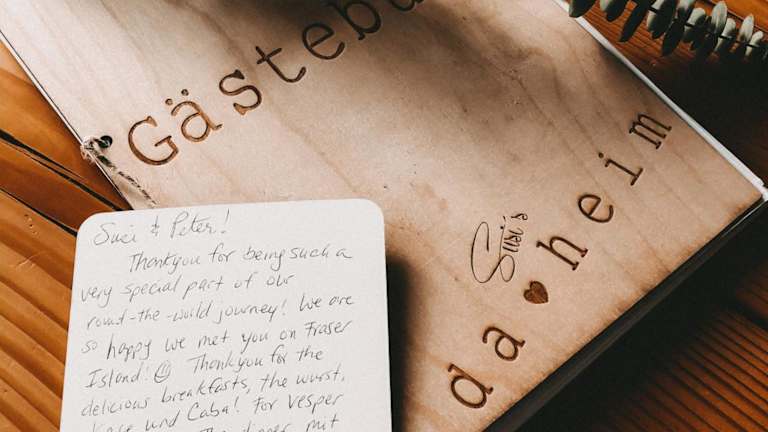 Gästebu
Susi's
da heim
Susi & Peter!
Thankyou for being such a
very special part of our
round-the-world journey! We are
so happy we met you on Fraser
Island! Thankyou for the
delicious breakfasts, the wurst,
Käse und Caba! For Vesper
The dinner mit